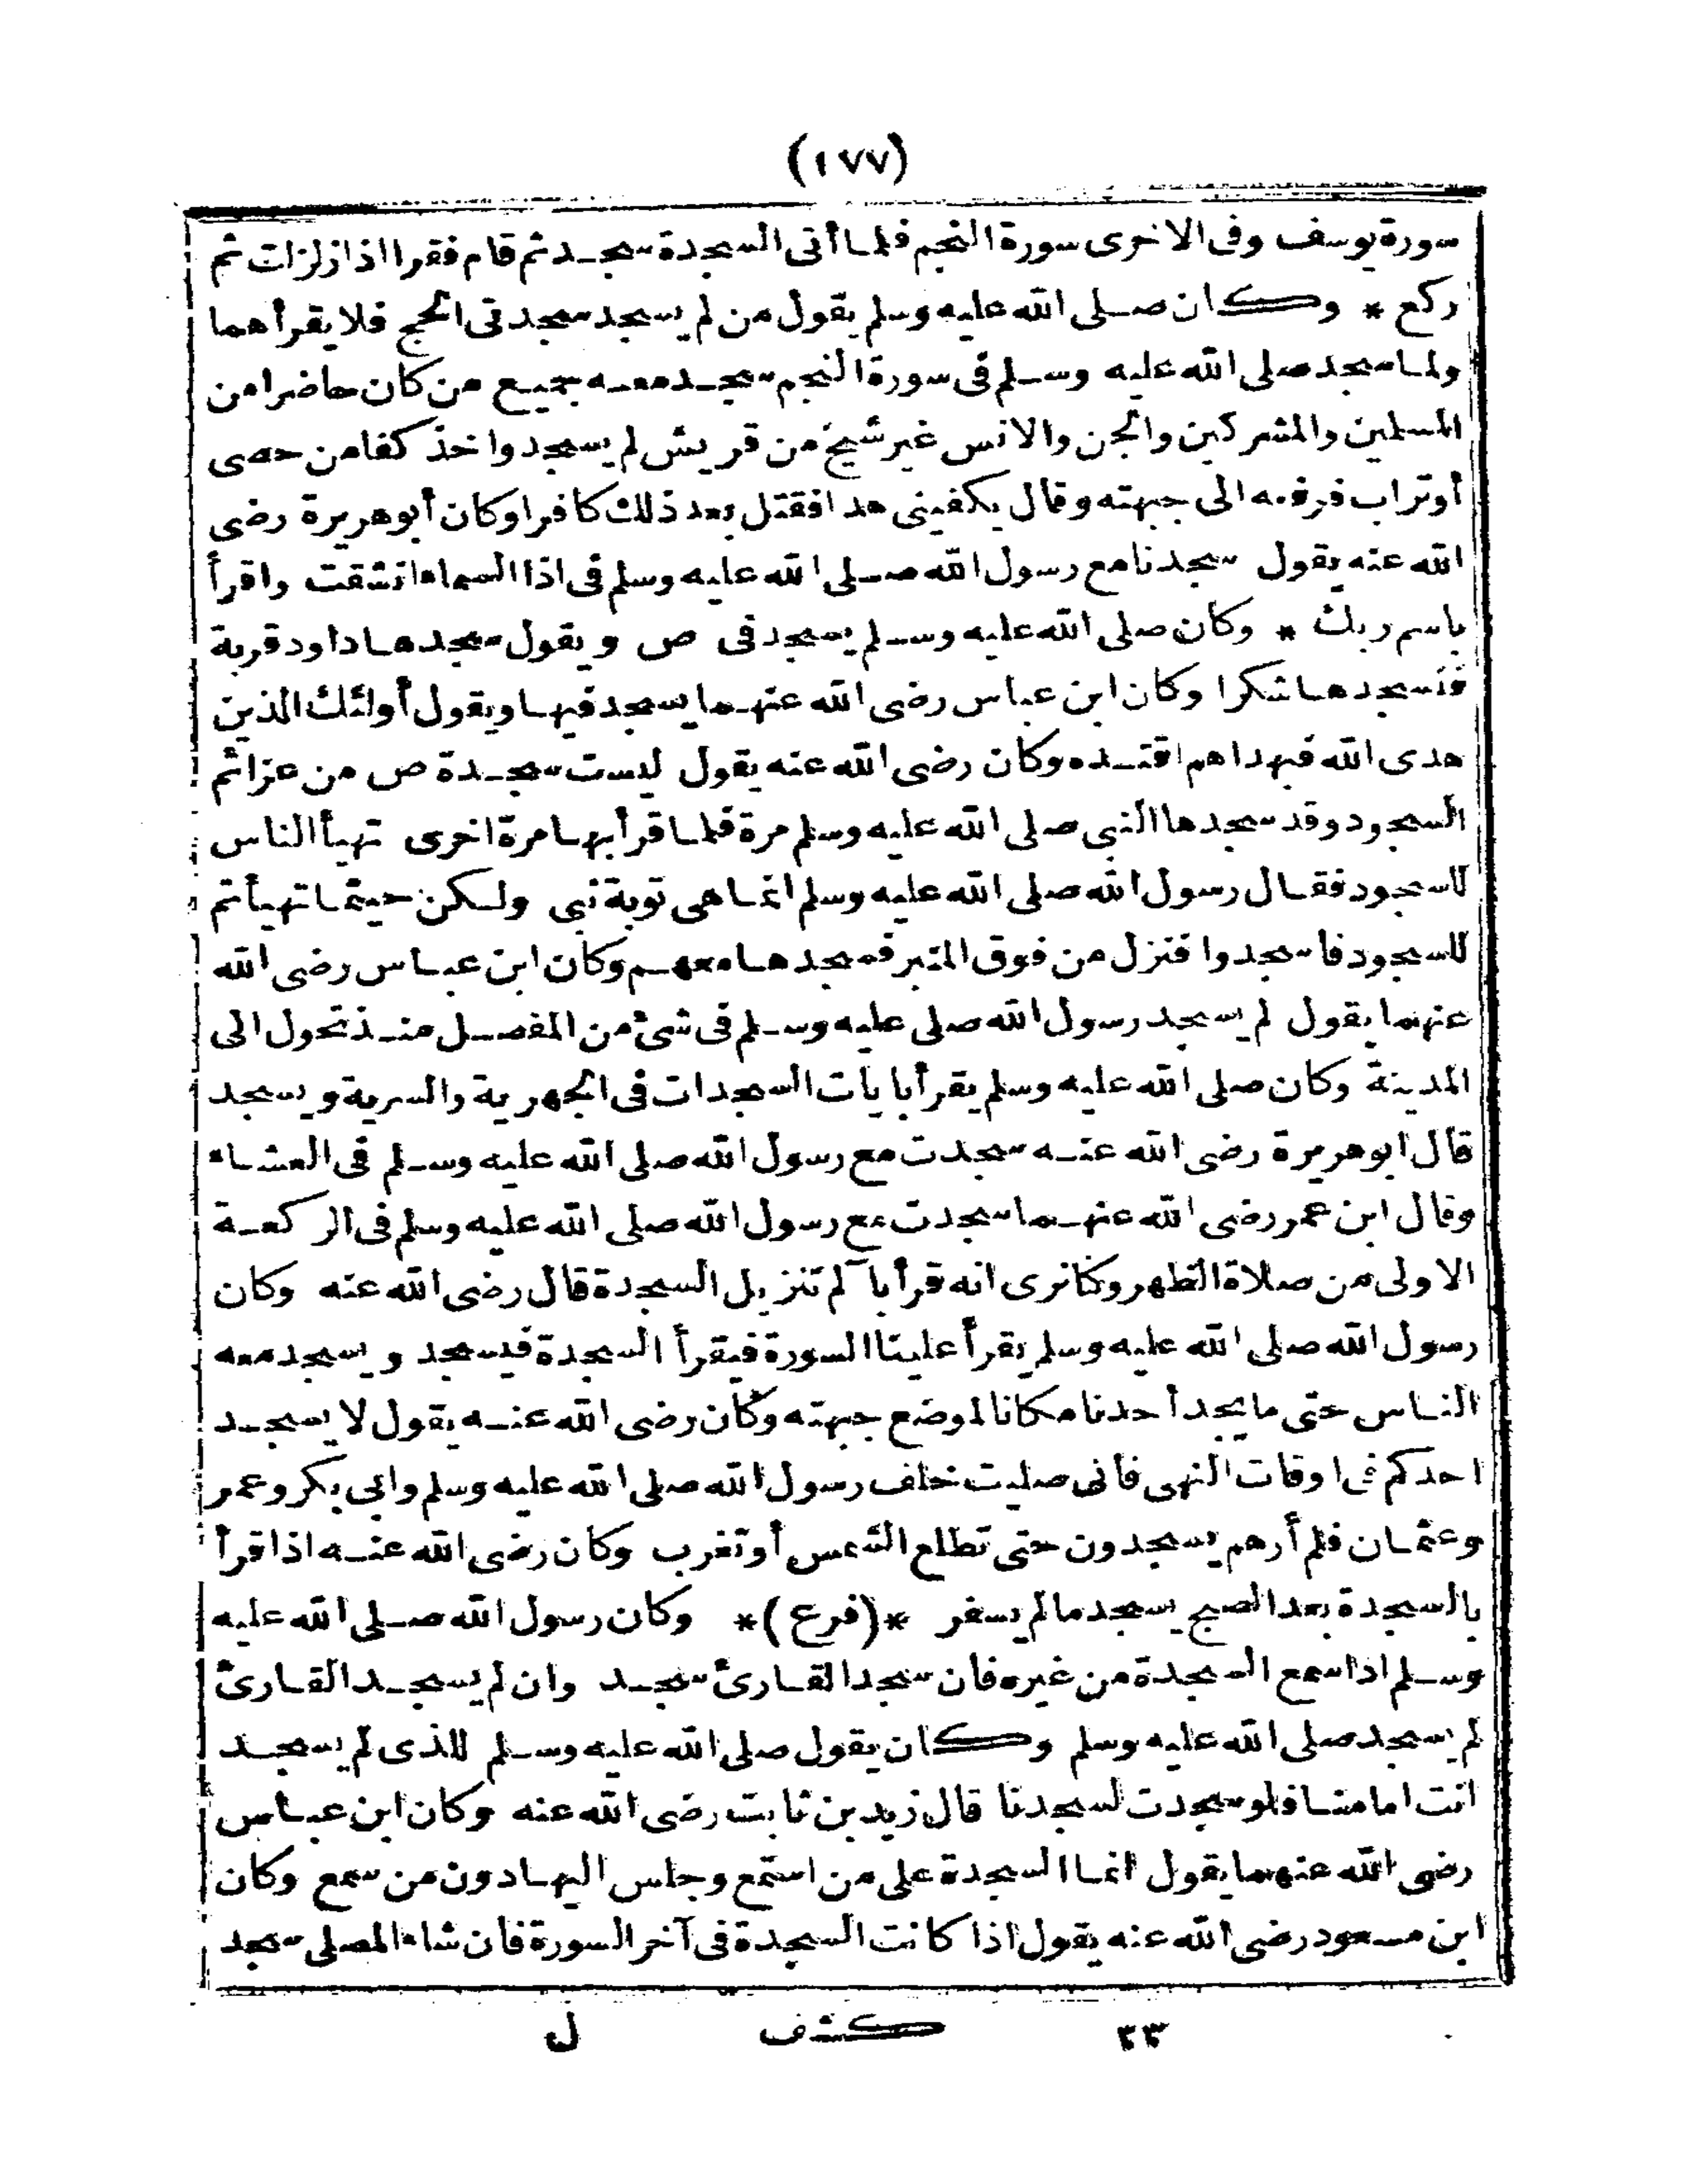 (١٧٧)
سورة يوسف وفى الاخرى سورة النجم فلما أتى السجدة سجد ثم قام فقرا اذا زلزلت ثم
ركع * وكان صلى الله عليه وسلم يقول من لم يسجد سجدتى الحج فلا يقرأهما
ولما سجد صلى الله عليه وسلم فى سورة النجم سجد معه جميع من كان حاضرا من
المسلمين والمشركين والجن والانس غير شيخ من قريش لم يسجد واخذ كفا من حصى
أو تراب فرفعه الى جبهته وقال يكفينى هذا فقتل بعد ذلك كافرا وكان أبو هريرة رضى
الله عنه يقول سجدنا مع رسول الله صلى الله عليه وسلم فى اذا السماء انشقت واقرأ
باسم ربك * وكان صلى الله عليه وسلم يسجد فى ص ويقول سجدها داود قربة
فنسجدها شكرا وكان ابن عباس رضى الله عنهما يسجد فيها ويقول أولئك الذين
هدى الله فبهداهم اقتده وكان رضى الله عنه يقول ليست سجدة ص من عزائم
السجود وقد سجدها النبى صلى الله عليه وسلم مرة فلما قرأ بها مرة اخرى تهيأ الناس
للسجود فقال رسول الله صلى الله عليه وسلم انما هى توبة نبى ولكن حيثما تهيأتم
للسجود فاسجدوا فنزل من فوق المنبر فسجدها معهم وكان ابن عباس رضى الله
عنهما يقول لم يسجد رسول الله صلى عليه وسلم فى شئ من المفصل منذ تحول الى
المدينة وكان صلى الله عليه وسلم يقرأ بايات السجدات فى الجهرية والسرية ويسجد
قال ابو هريرة رضى الله عنه سجدت مع رسول الله صلى الله عليه وسلم فى العشاء
وقال ابن عمر رضى الله عنهما سجدت مع رسول الله صلى الله عليه وسلم فى الركعة
الاولى من صلاة الظهر وكنا نرى انه قرأ بآلم تنزيل السجدة قال رضى الله عنه وكان
رسول الله صلى الله عليه وسلم يقرأ علينا السورة فيقرأ السجدة فيسجد ويسجد معه
الناس حتى ما يجد أحدنا مكانا لموضع جبهته وكان رضى الله عنه يقول لا يسجد
احدكم فى اوقات النهى فانى صليت خلف رسول الله صلى الله عليه وسلم وابى بكر وعمر
وعثمان فلم أرهم يسجدون حتى تطلع الشمس أو تغرب وكان رضى الله عنه اذا قرأ
بالسجدة بعد الصبح يسجد ما لم يسفر *(فرع)* وكان رسول الله صلى الله عليه
وسلم اذا سمع السجدة من غيره فان سجد القارئ سجد وان لم يسجد القارئ
لم يسجد صلى الله عليه وسلم وكان يقول صلى الله عليه وسلم للذى لم يسجد
انت امامنا فلو سجدت لسجدنا قال زيد بن ثابت رضى الله عنه وكان ابن عباس
رضى الله عنهما يقول انما السجدة على من استمع وجلس اليها دون من سمع وكان
ابن مسعود رضى الله عنه يقول اذا كانت السجدة فى آخر السورة فان شاء المصلى سجد
٢٣ كشف ل